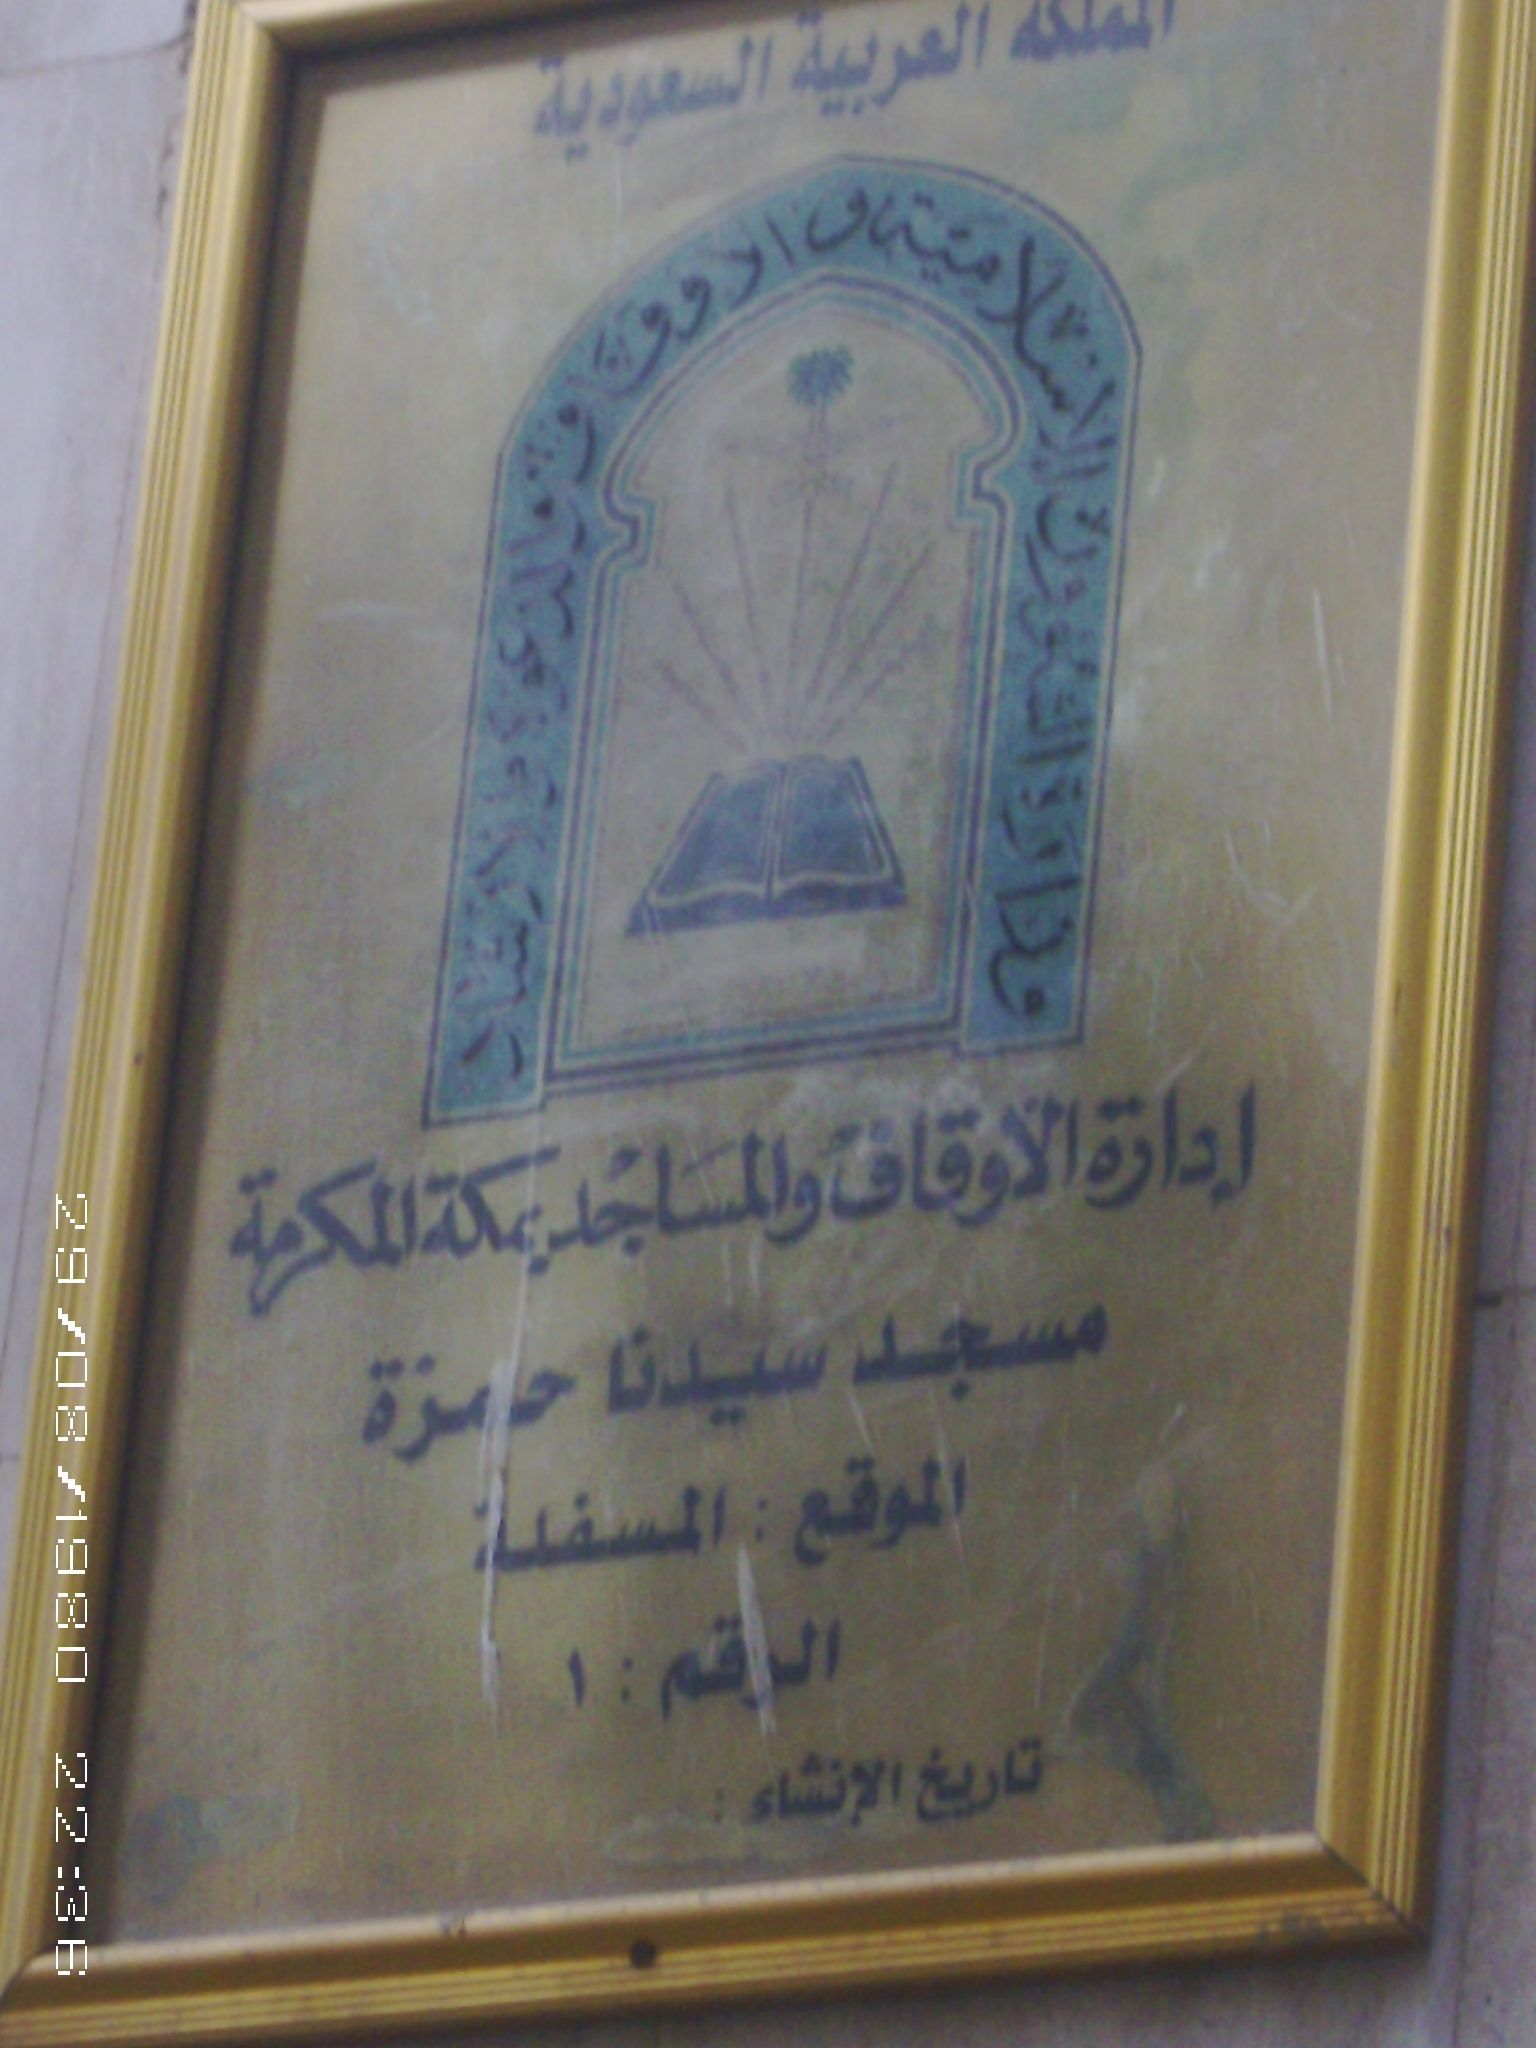 المملكة العربية السعودية
وزارة الشئون الإسلامية والأوقاف والدعوة والإرشاد
إدارة الأوقاف والمساجد بمكة المكرمة
مسجد سيدنا حمزة
الموقع : المسفلة
الرقم : ١
تاريخ الإنشاء :
29/08/1980 22:36